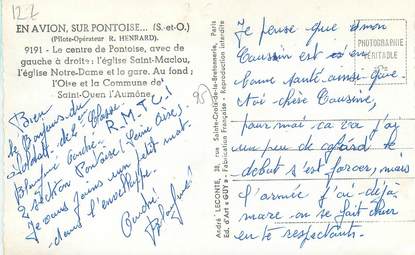 12 Z
EN AVION, SUR PONTOISE... (S.-et-O.)
(Pilote-Opérateur R. HENRARD).
9191 - Le centre de Pontoise, avec de
gauche à droite : l'église Saint-Maclou,
l'église Notre-Dame et la gare. Au fond ;
l'Oise et la Commune de
Saint-Ouen l'Aumône.
Bien
le Bonjour du
soldat de 2e Classe
André R.M.T.C!
2 section Pontoise (Seine Oise)
Je vous joins un petit mot
dans l'enveloppe.
André
95
André LECONTE, 38, rue Sainte-Croix-de-la-Bretonnerie, Paris
Ed. d'Art "GUY" - Fabrication Française - Reproduction interdite
PHOTOGRAPHIE
VÉRITABLE
Je pense que mon
Cousin est en
bonne santé ainsi que
toi chère Cousine,
pour moi ca va j'ai
un peu de cafard le
début s'est forcer, mais
l'armée j'ai déjà
mare on se fait chier
en te respectant.